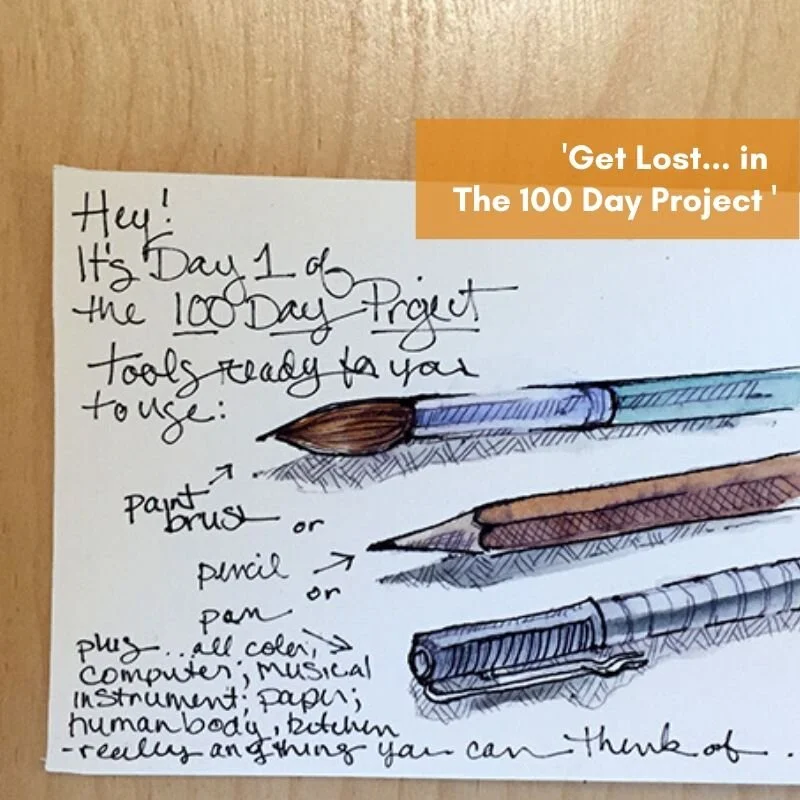 'Get Lost... in
The 100 Day Project '
Hey!
It's Day 1 of
the 100 Day Project
tools ready for you
to use:
paint
brush or
pencil
or
pen
plus...all color,
computer; musical
instrument; paper;
human body, kitchen
-really anything you can think of...